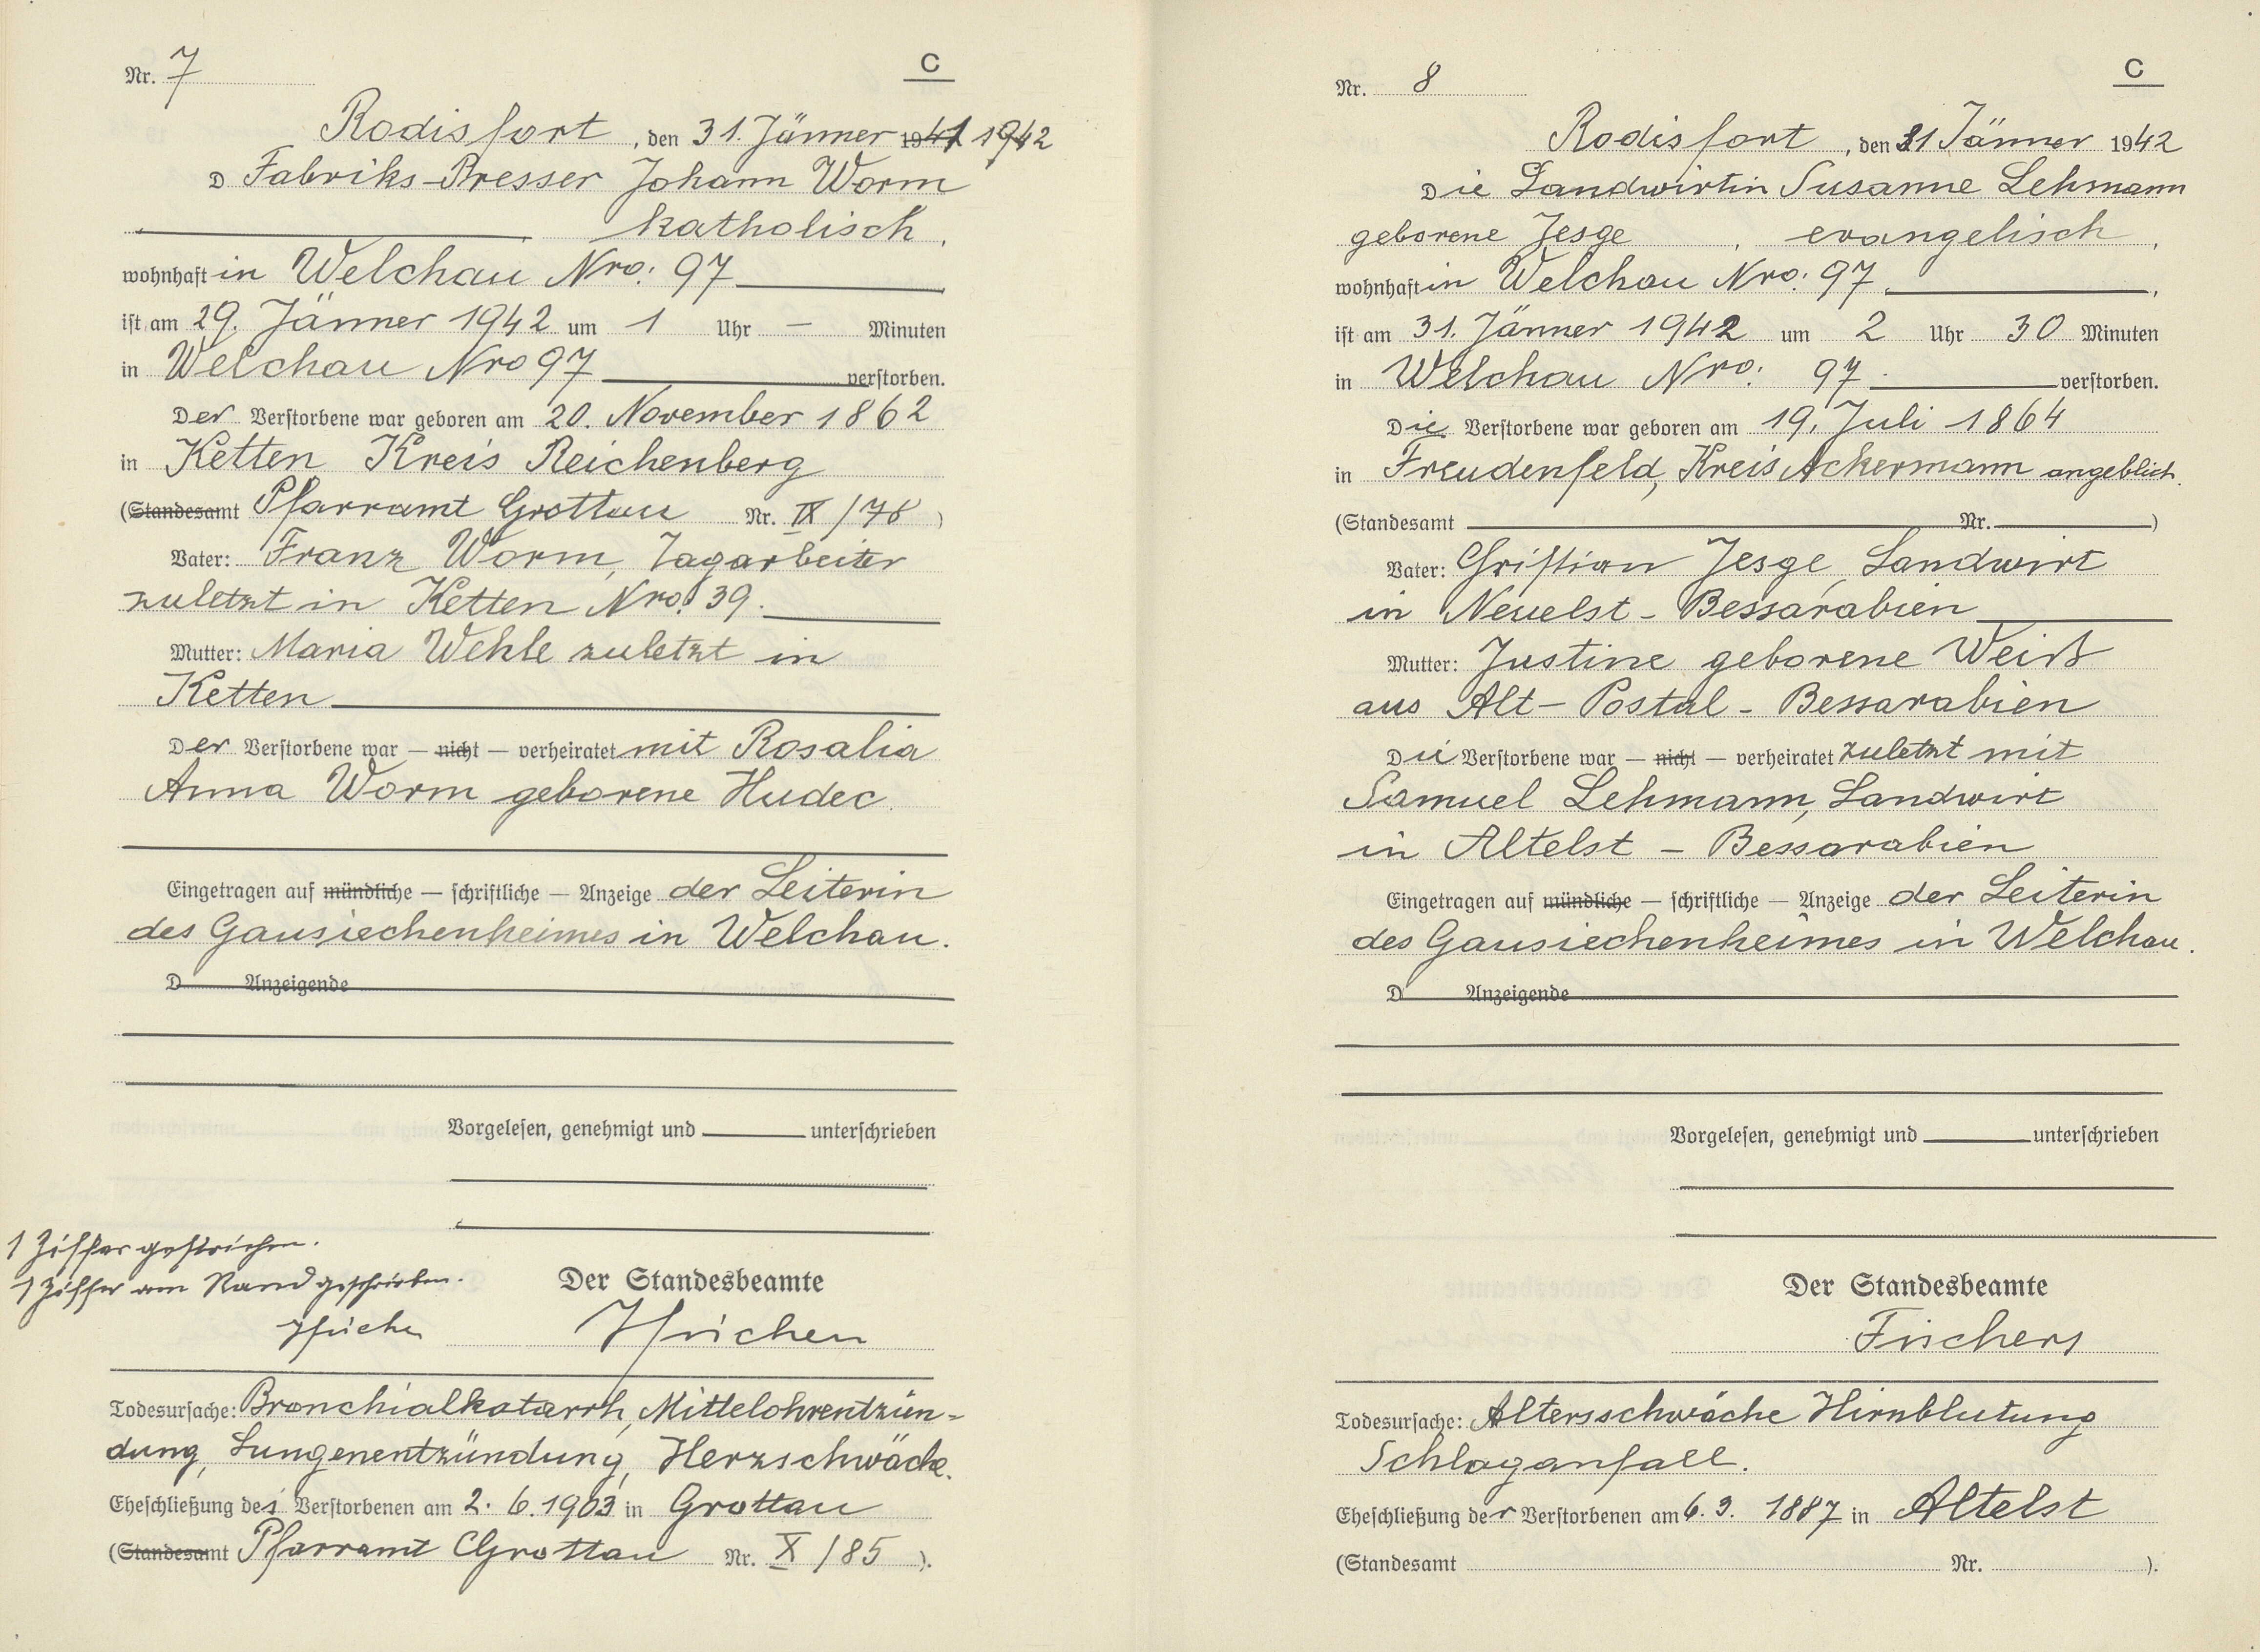 Nr. 7
C
Rodisfort, den 31. Jänner 1941 1942
D Fabriks-Presser Johann Worm
katholisch,
wohnhaft in Welchau Nro: 97
ist am 29. Jänner 1942 um 1 Uhr – Minuten
in Welchau Nro 97 verstorben.
Der Verstorbene war geboren am 20. November 1862
in Ketten Kreis Reichenberg
(Standesamt Pfarramt Grottau Nr. IX/76)
Vater: Franz Worm, Tagarbeiter
zuletzt in Ketten Nro: 39.
Mutter: Maria Wehle zuletzt in
Ketten
Der Verstorbene war — nicht — verheiratet mit Rosalia
Anna Worm geborene Hudec.
Eingetragen auf mündliche — schriftliche — Anzeige der Leiterin
des Gausiechenheimes in Welchau.
D Anzeigende
Vorgelesen, genehmigt und unterschrieben
1 Ziffer gestrichen.
1 Ziffer am Rand geschrieben.
Der Standesbeamte
Todesursache: Bronchialkatarrh, Mittelohrentzün-
dung, Lungenentzündung, Herzschwäche.
Eheschließung des Verstorbenen am 2. 6. 1903 in Grottau
(Standesamt Pfarramt Grottau Nr. X/85).
Nr. 8
C
Rodisfort, den 31 Jänner 1942
Die Landwirtin Susanne Lehmann
geborene Jesge, evangelisch,
wohnhaft in Welchau Nro: 97,
ist am 31. Jänner 1942 um 2 Uhr 30 Minuten
in Welchau Nro: 97 verstorben.
Die Verstorbene war geboren am 19. Juli 1864
in Freudenfeld, Kreis Ackermann angeblich.
(Standesamt Nr. )
Vater: Christian Jesge, Landwirt
in Neuelst - Bessarabien
Mutter: Justine geborene Weiß
aus Alt-Postal - Bessarabien
Die Verstorbene war — nicht — verheiratet zuletzt mit
Samuel Lehmann, Landwirt
in Altelst - Bessarabien
Eingetragen auf mündliche — schriftliche — Anzeige der Leiterin
des Gausiechenheimes in Welchau.
D Anzeigende
Vorgelesen, genehmigt und unterschrieben
Der Standesbeamte
Todesursache: Altersschwäche Hirnblutung
Schlaganfall.
Eheschließung der Verstorbenen am 6. 3. 1887 in Altelst
(Standesamt Nr. ).